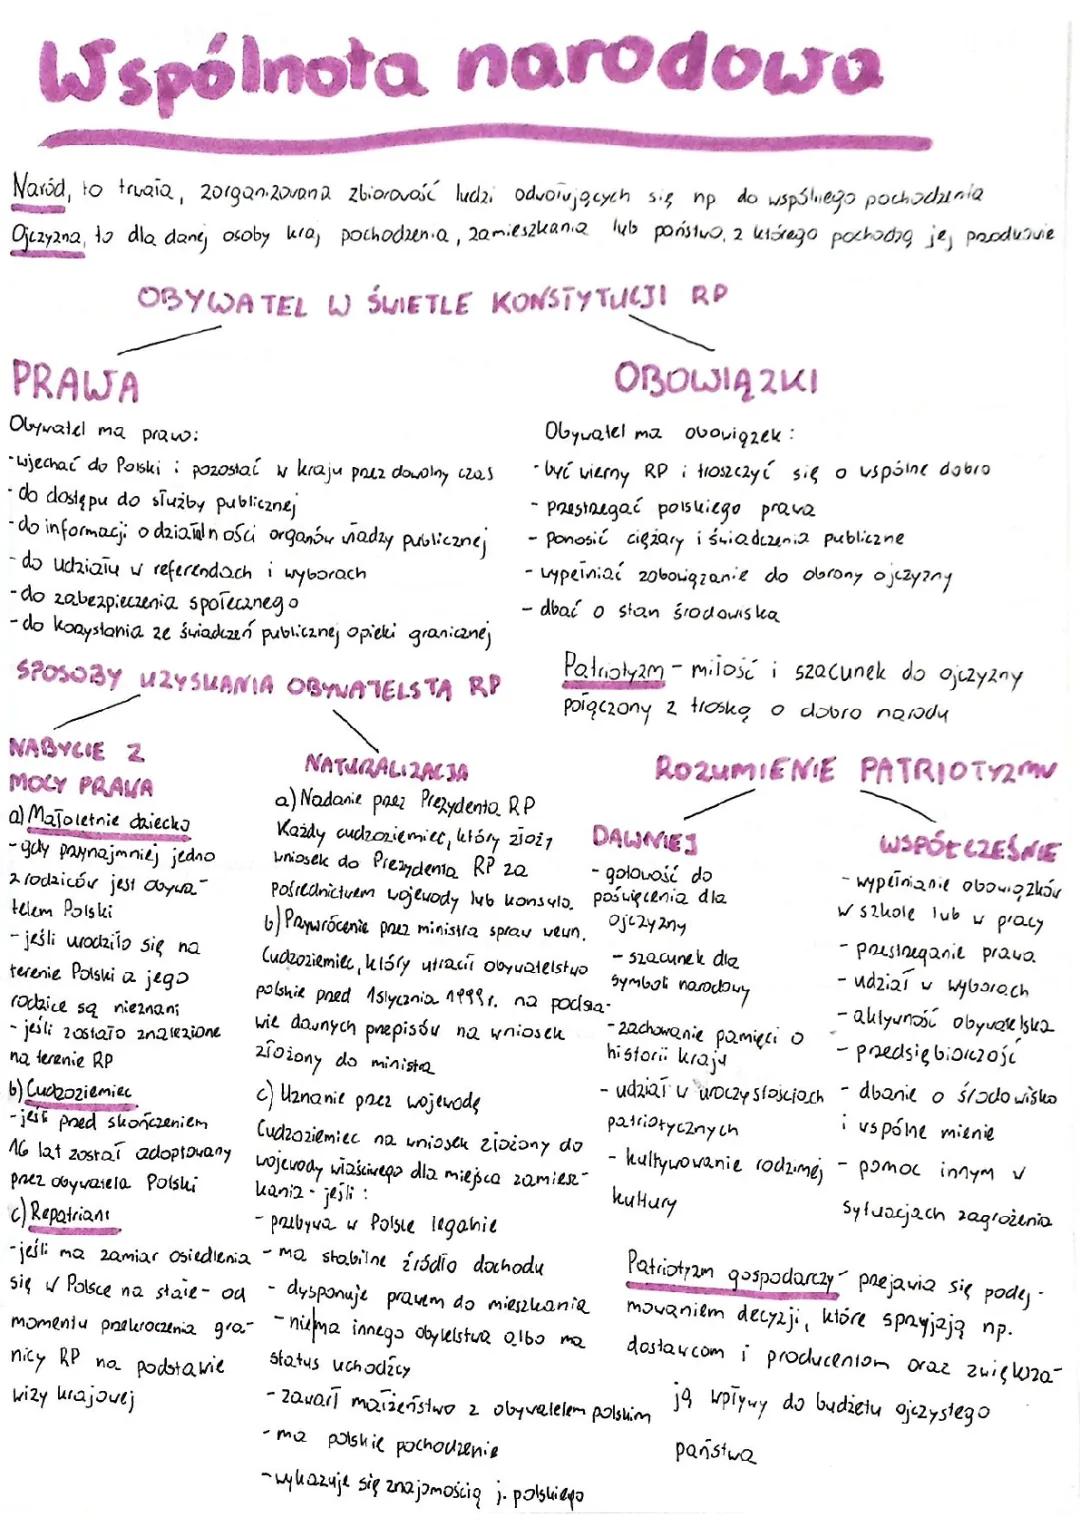 Wspólnota narodowa
Naród, to trwała, zorganizowana zbiorowość ludzi odwołujących się np do wspólnego pochodzenia
Ojczyzna, to dla danej osoby kraj pochodzenia, zamieszkania lub państwo, z którego pochodzą jej przodkowie
OBYWATEL W ŚWIETLE KONSTYTUCJI RP
PRAWA
Obywatel ma prawo:
-wjechać do Polski i pozostać w kraju przez dowolny czas
-do dostępu do służby publicznej
-do informacji o działalności organów władzy publicznej
-do udziału w referendach i wyborach
-do zabezpieczenia społecznego
-do korzystania ze świadczeń publicznej opieki granicznej
OBOWIĄZKI
Obywatel ma obowiązek:
-być wierny RP i troszczyć się o wspólne dobro
- przestrzegać polskiego prawa
- ponosić ciężary i świadczenia publiczne
- wypełniać zobowiązanie do obrony ojczyzny
- dbać o stan środowiska
Patriotyzm - miłość i szacunek do ojczyzny
połączony z troską o dobro narodu
SPOSOBY UZYSKANIA OBYWATELSTA RP
NABYCIE Z
MOCY PRAWA
a) Małoletnie dziecko
-gdy przynajmniej jedno
z rodziców jest obywa-
telem Polski
-jeśli urodziło się na
terenie Polski a jego
rodzice są nieznani
- jeśli zostało znalezione
na terenie RP
b) Cudzoziemiec
-jeśli przed skończeniem
16 lat został adoptowany
przez obywatela Polski
c) Repatriant
-jeśli ma zamiar osiedlenia
się w Polsce na stałe- od
momentu przekroczenia gra-
nicy RP na podstawie
wizy krajowej
NATURALIZACJA
a) Nadanie przez Prezydenta RP
Każdy cudzoziemiec, który złoży
wniosek do Prezydenta RP za
pośrednictwem wojewody lub konsula.
b) Przywrócenie przez ministra spraw wewn.
Cudzoziemiec, który utracił obywatelstwo
polskie przed 1stycznia 1999r. na podsta-
wie dawnych przepisów na wniosek
złożony do ministra
c) Uznanie przez wojewodę
Cudzoziemiec na wniosek złożony do
wojewody właściwego dla miejsca zamiesz-
kania - jeśli:
- przebywa w Polsce legalnie
- ma stabilne źródło dochodu
- dysponuje prawem do mieszkania
- nie ma innego obytelstwa albo ma
status uchodźcy
- zawarł małżeństwo z obywatelem polskim
- ma polskie pochodzenie
-wykazuje się znajomością j. polskiego
ROZUMIENIE PATRIOTYZMU
DAWNIEJ
- gotowość do
poświęcenia dla
ojczyzny
- szacunek dla
symboli narodowy
-zachowanie pamięci o
historii kraju
- udział w uroczystościach
patriotycznych
- kultywowanie rodzimej
kultury
WSPÓŁCZEŚNIE
- wypełnianie obowiązków
w szkole lub w pracy
- przestrzeganie prawa
- udział w wyborach
- aktywność obywatelska
- przedsiębiorczość
- dbanie o środowisko
i wspólne mienie
- pomoc innym w
sytuacjach zagrożenia
Patriotyzm gospodarczy - przejawia się podej-
mowaniem decyzji, które sprzyjają np.
dostawcom i producentom oraz zwiększa-
ją wpływy do budżetu ojczystego
państwa